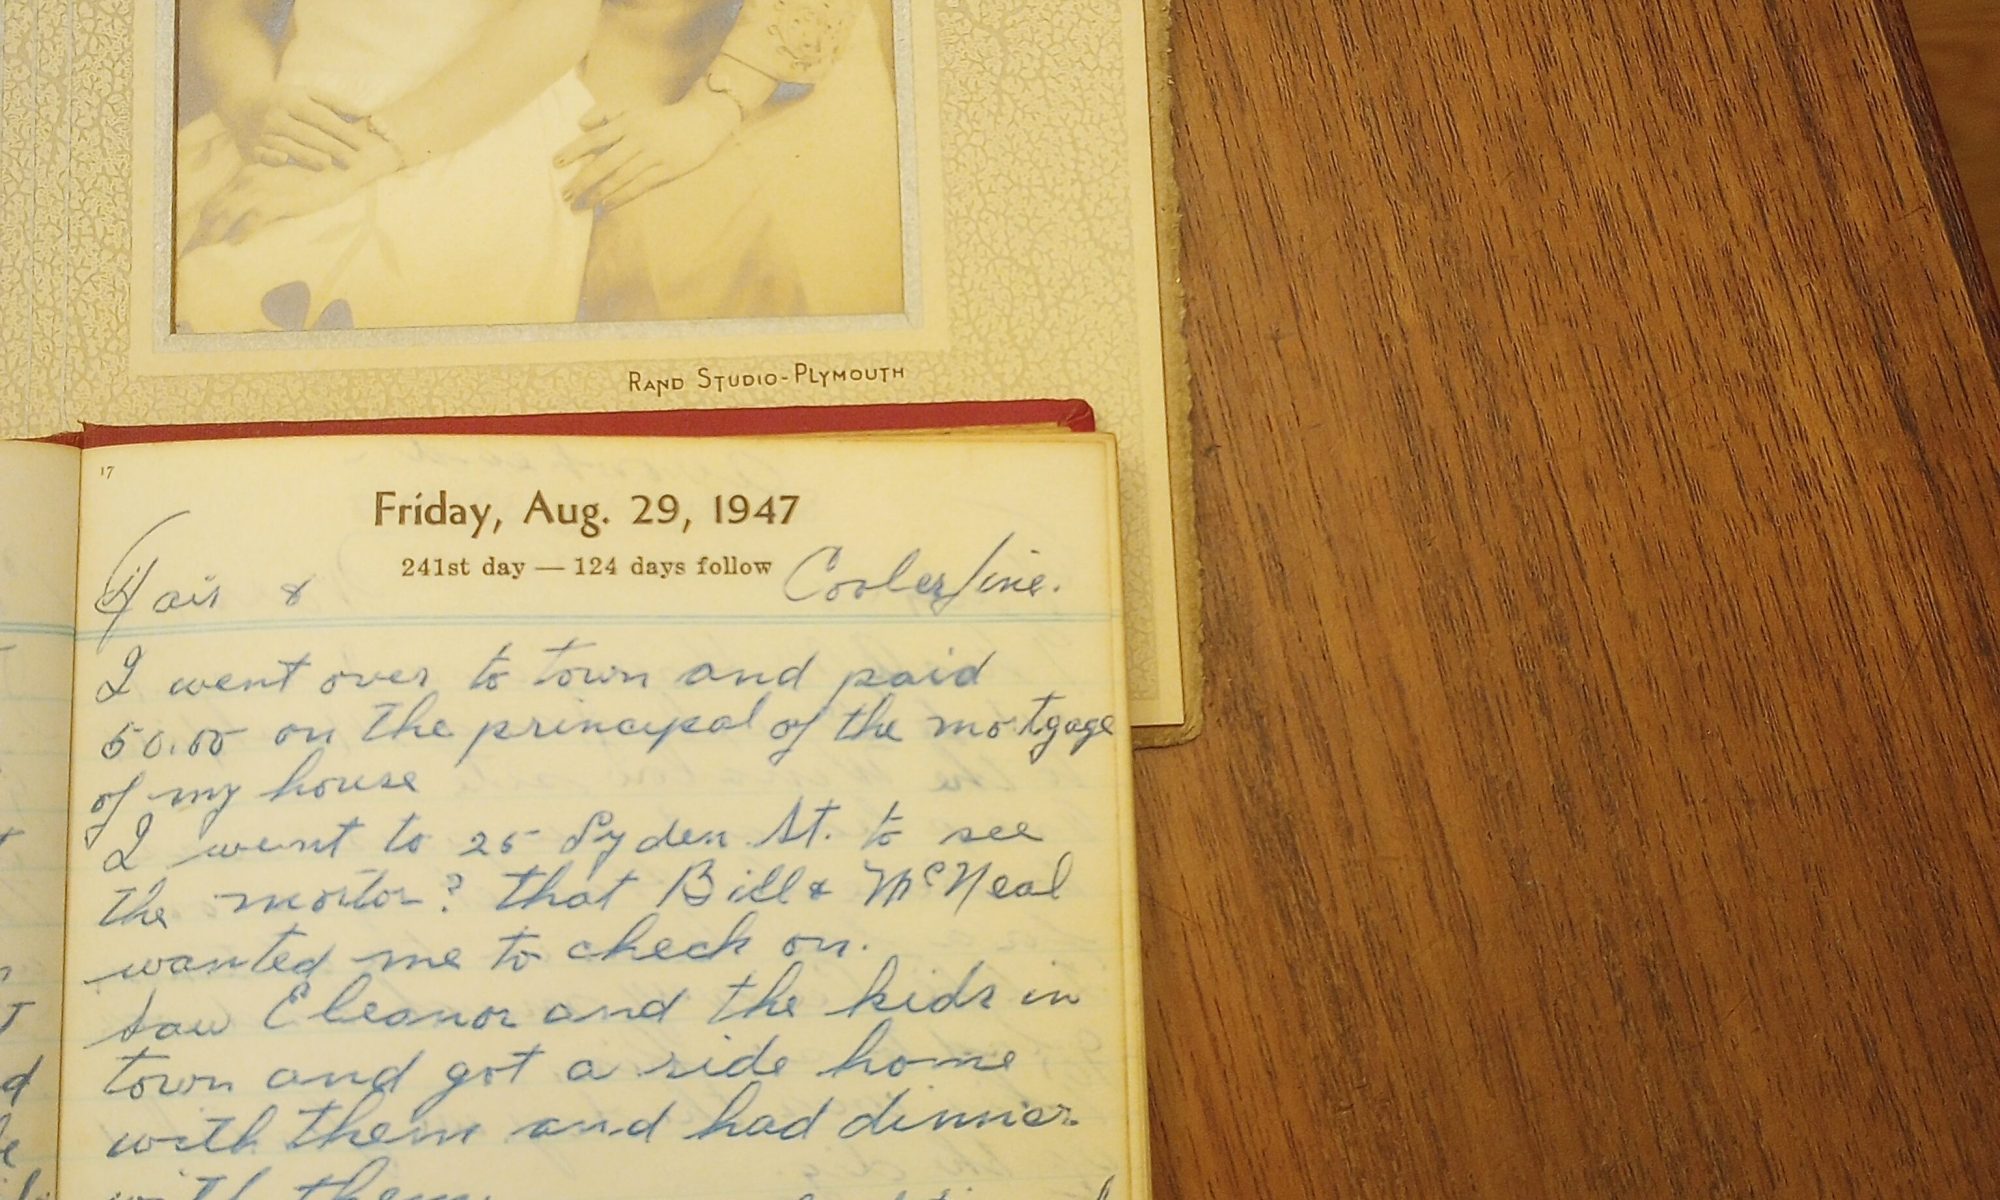 RAND STUDIO-PLYMOUTH
17
Friday, Aug. 29, 1947
241st day — 124 days follow
Fair & Cooler/ine.
I went over to town and paid
50.00 on the principal of the mortgage
of my house
I went to 25 St. to see
the ? that Bill & McNeal
wanted me to check on.
Saw Eleanor and the kids in
town and got a ride home
with them and had dinner
with them.